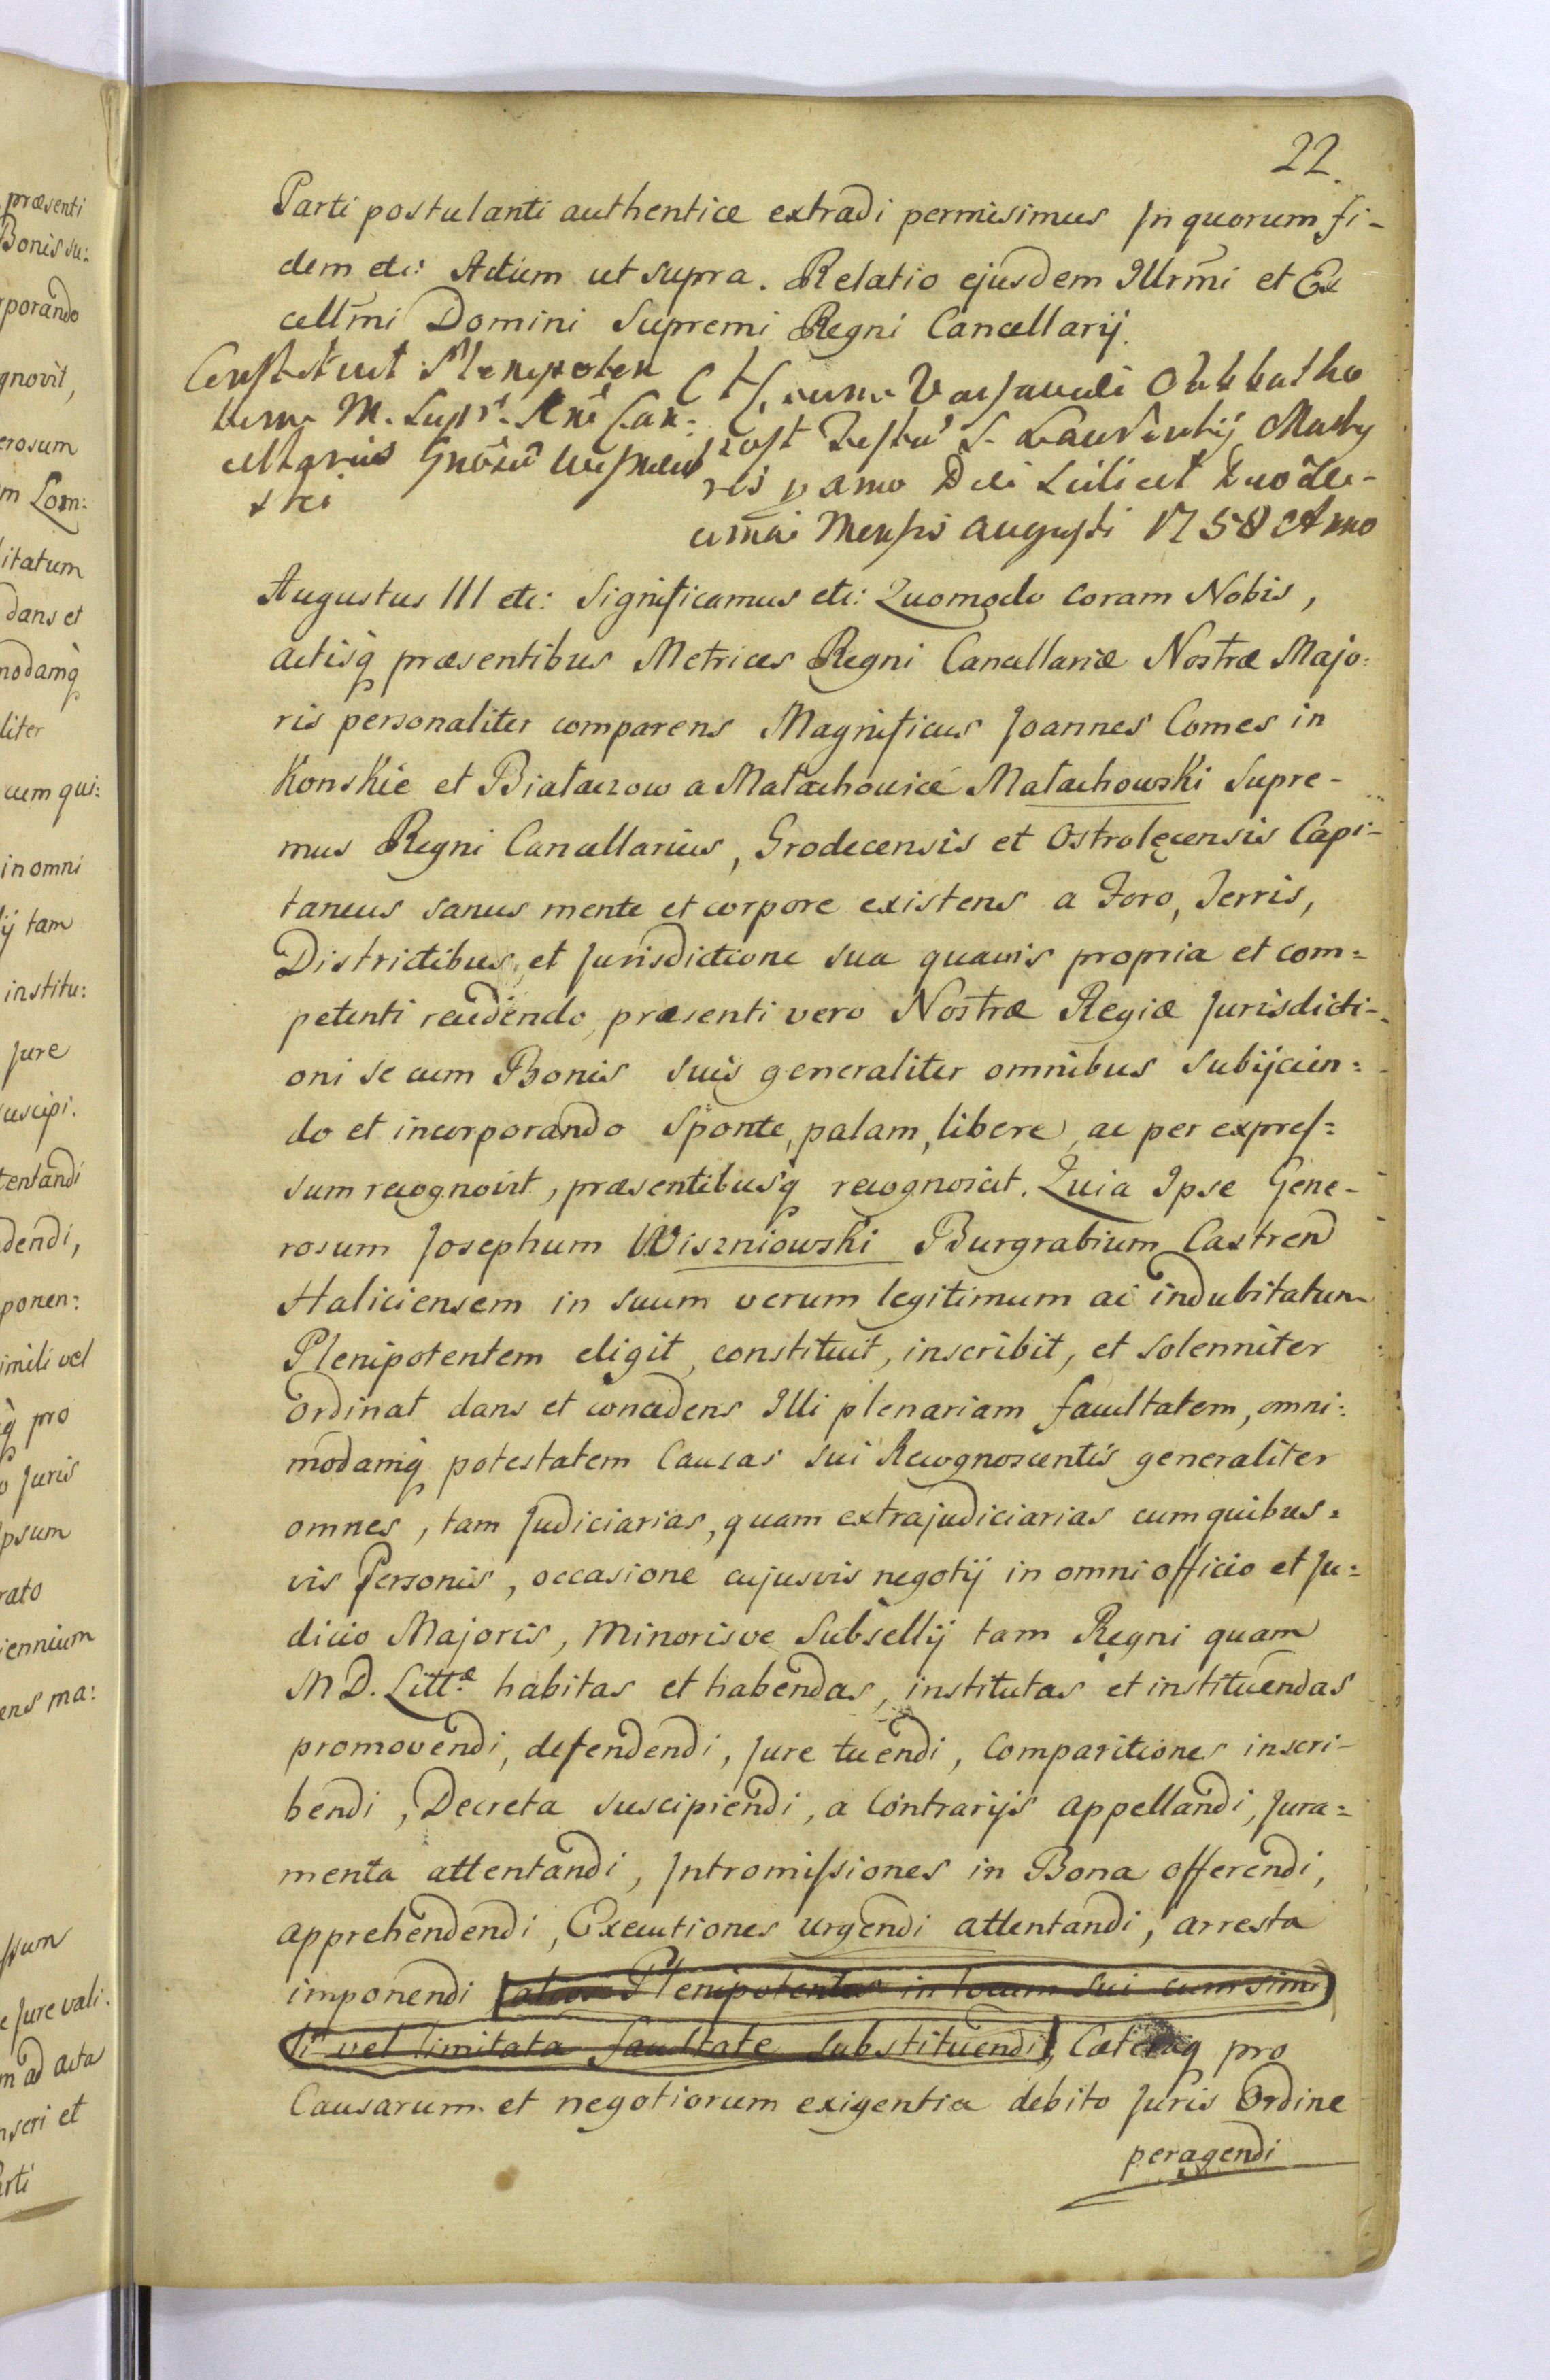 22.
Parti postulanti authentice extradi permisimus In quorum fi-
dem etc: Actum ut supra. Relatio ejusdem Illrmi et Ex
cellmi Domini Supremi Regni Cancellarij.
Constituit Plenipoten
tem M. Supr. Rni Can:
cellarius Gnosu Wisniow
ski
Actum Varsaviae Sabbatho
post Festu S. Laurentij Marty
ris pximo Die scilicet duode-
cima Mensis Augusti 1758 Anno
Augustus III etc: Significamus etc: Quomodo coram Nobis,
actisq præsentibus Metrices Regni Cancellariæ Nostræ Majo:
ris personaliter comparens Magnificus Joannes Comes in
Konskie et Białaczow a Małachowice Małachowski Supre-
mus Regni Cancellarius, Grodecensis et Ostrolęcensis Capi-
taneus sanus mente et corpore existens a Foro, Terris,
Districtibus, et Jurisdictione sua quavis propria et com=
petenti recedendo, præsenti vero Nostræ Regiæ Jurisdicti-
oni se cum Bonis suis generaliter omnibus subijcien:
do et incorporando Sponte, palam, libere, ac per expres=
sum recognovit, præsentibusq recognoscit. Quia Ipse Gene-
rosum Josephum Wiszniowski Burgrabium Castren
Haliciensem in suum verum legitimum ac indubitatum
Plenipotentem eligit, constituit, inscribit, et solenniter
ordinat dans et concedens Illi plenariam facultatem, omni:
modamq potestatem Causas sui Recognoscentis generaliter
omnes, tam Judiciarias, quam extrajudiciarias cum quibus=
vis Personis, occasione cujusvis negotij in omni officio et Ju=
dicio Majoris, Minorisve Subsellij tam Regni quam
M D. Littæ habitas et habendas, institutas et instituendas
promovendi, defendendi, Jure tuendi, Comparitiones inscri-
bendi, Decreta suscipiendi, a Contrarijs appellandi, Jura=
menta attentandi, Intromissiones in Bona offerendi,
apprehendendi, Executiones urgendi attentandi, arresta
imponendi alios Plenipotentes in locum sui cum simi
li vel limitata facultate substituendi, Cæteraq pro
Causarum et negotiorum exigentia debito Juris Ordine
peragendi
præsenti
Bonis su:
rporando
gnovit,
erosum
m Lom:
litatum
dans et
modamq
liter
cum qui:
in omni
ij tam
institu:
Jure
suscipi.
tentandi
dendi,
ponen:
imili vel
q pro
o Juris
Ipsum
rato
iennium
ens ma:
ssum
e Jure vali.
m ad acta
nseri et
arti